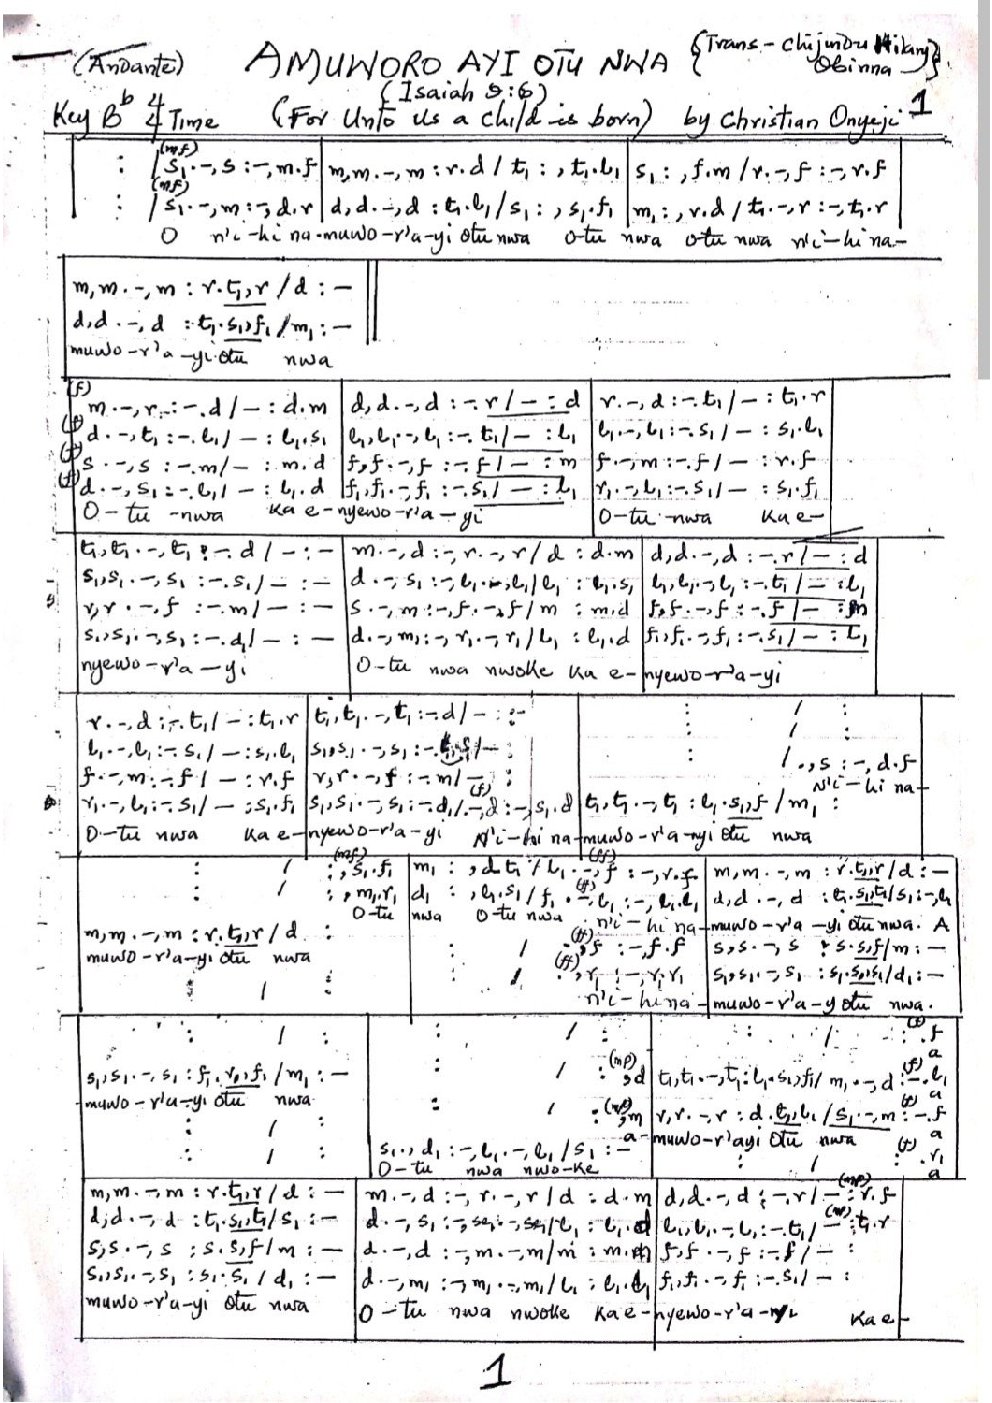 (Andante) AMUWORO AYI OTU NWA {Trans-Chijindu Hilary Obinna}
(Isaiah 9:6)
Key Bb 4/4 Time (For Unto Us a Child is born) by Christian Onyeji 1
(mf)
: / s₁.-,s :-,m.f | m,m.-,m : r.d / t₁ : ,t₁.l₁ | s₁ : ,f.m / r.-,f :-,r.f
(mf)
: / s₁.-,m :-,d.r | d,d.-,d : t₁.l₁ / s₁ : ,s₁.f₁ | m₁ : ,r.d / t₁.-,r :-,t₁.r
O n'i-hi na-muwo-r'a-yi otu nwa o-tu nwa otu nwa n'i-hi na-
m,m.-,m : r.t₁,r / d : -
d,d.-,d : t₁.s₁,f₁ / m₁ : -
muwo-r'a-yi otu nwa
(f) m.-,r :-.d / - : d.m | d,d.-,d :-.r / - : d | r.-,d :-.t₁ / - : t₁.r
(f) d.-,t₁ :-.l₁ / - : l₁.s₁ | l₁,l₁.-,l₁ :-.t₁ / - : l₁ | l₁.-,l₁ :-.s₁ / - : s₁.l₁
(f) s.-,s :-.m / - : m.d | f,f.-,f :-.f / - : m | f.-,m :-.f / - : r.f
(f) d.-,s₁ :-.l₁ / - : l₁.d | f₁,f₁.-,f₁ :-.s₁ / - : l₁ | r₁.-,l₁ :-.s₁ / - : s₁.f₁
O-tu-nwa ka e-nyewo-r'a-yi O-tu-nwa ka e-
t₁,t₁.-,t₁ :-.d / - : - | m.-,d :-,r.-,r / d : d.m | d,d.-,d :-.r / - : d
s₁,s₁.-,s₁ :-.s₁ / - : - | d.-,s₁ :-,l₁.-,l₁ / l₁ : l₁.s₁ | l₁,l₁.-,l₁ :-.t₁ / - : l₁
r,r.-,f :-.m / - : - | s.-,m :-,f.-,f / m : m.d | f,f.-,f :-.f / - : m
s₁,s₁.-,s₁ :-.d₁ / - : - | d.-,m₁ :-,r₁.-,r₁ / l₁ : l₁.d | f₁,f₁.-,f₁ :-.s₁ / - : l₁
nyewo-r'a-yi O-tu nwa nwoke ka e-nyewo-r'a-yi
r.-,d :-.t₁ / - : t₁.r | t₁,t₁.-,t₁ :-d / - : - | : / :
l₁.-,l₁ :-.s₁ / - : s₁.l₁ | s₁,s₁.-,s₁ :- / - | : / .,s :-,d.f
f.-,m :-.f / - : r.f | r,r.-,f :-m / - : | N'i-hi na-
r₁.-,l₁ :-.s₁ / - : s₁.f₁ | s₁,s₁.-,s₁ :-d₁ / (f) .-,d :-,s₁.d | t₁,t₁.-,t₁ : l₁.s₁,f / m₁ :
O-tu nwa ka e-nyewo-r'a-yi N'i-hi na-muwo-r'a-nyi otu nwa
: / : (mf) ,s₁.f₁ | m₁ : ,d.t₁ / l₁.-,(ff) f :-,r.f | m,m.-,m : r.t₁,r / d : -
: / : ,m₁.r₁ | d₁ : ,l₁.s₁ / f₁.-,(ff) l₁ :-,l₁.l₁ | d,d.-,d : t₁.s₁,t₁ / s₁ :-,l₁
O-tu nwa O-tu nwa n'i-hi na-muwo-r'a-yi otu nwa. A
m,m.-,m : r.t₁,r / d : | : / (ff) ,f :-,f.f | s,s.-,s : s.s,f / m : -
muwo-r'a-yi otu nwa
: / : | : / (ff) ,r₁ :-,r₁.r₁ | s₁,s₁.-,s₁ : s₁.s₁,s₁ / d₁ : -
n'i-hi na-muwo-r'a-y otu nwa.
: / : | : / : | : / : (f) .f
a
s₁,s₁.-,s₁ : f₁.r₁,f₁ / m₁ : - | : / : (mp) ,d | t₁,t₁.-,t₁ : l₁.s₁,f₁ / m₁.-,d :-.(f) l₁
muwo-r'a-yi otu nwa a
: / : | : / : (mp) ,m | r,r.-,r : d.t₁,l₁ / s₁.-,m :-.f
a-muwo-r'ayi otu nwa a
: / : | s₁.,d₁ :-,l₁.-,l₁ / s₁ : - | : / : (f) .r₁
O-tu nwa nwo-ke a
m,m.-,m : r.t₁,r / d : - | m.-,d :-,r.-,r / d : d.m | d,d.-,d :-,r / - : (mp) r.f
d,d.-,d : t₁.s₁,t₁ / s₁ : - | d.-,s₁ :-,se₁.-,se₁ / l₁ : l₁.d | l₁,l₁.-,l₁ :-.t₁ / - : (mp) t₁.r
s,s.-,s : s.s,f / m : - | d.-,d :-,m.-,m / m : m.m | f,f.-,f :-.f / - :
s₁,s₁.-,s₁ : s₁.s₁ / d₁ : - | d.-,m₁ :-,m₁.-,m₁ / l₁ : l₁.l₁ | f₁,f₁.-,f₁ :-.s₁ / - :
muwo-r'a-yi otu nwa O-tu nwa nwoke ka e-nyewo-r'a-nyi ka e-
1